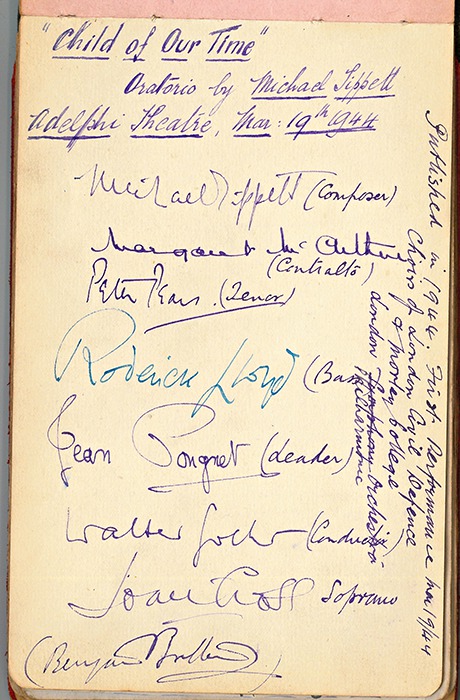 "Child of Our Time"
Oratorio by Michael Tippett
Adelphi Theatre, Mar: 19th 1944
Michael Tippett (Composer)
Margaret McArthur
(Contralto)
Peter Pears. (Tenor)
Roderick Lloyd (Bass)
Jean Pougnet (Leader)
Walter Goehr (Conductor)
Joan Cross Soprano
(Benjamin Britten)
Published in 1944. First Performance Mar 19/44
Choirs of London Civil Defence
& Morley College
London Symphony Orchestra
Philharmonic